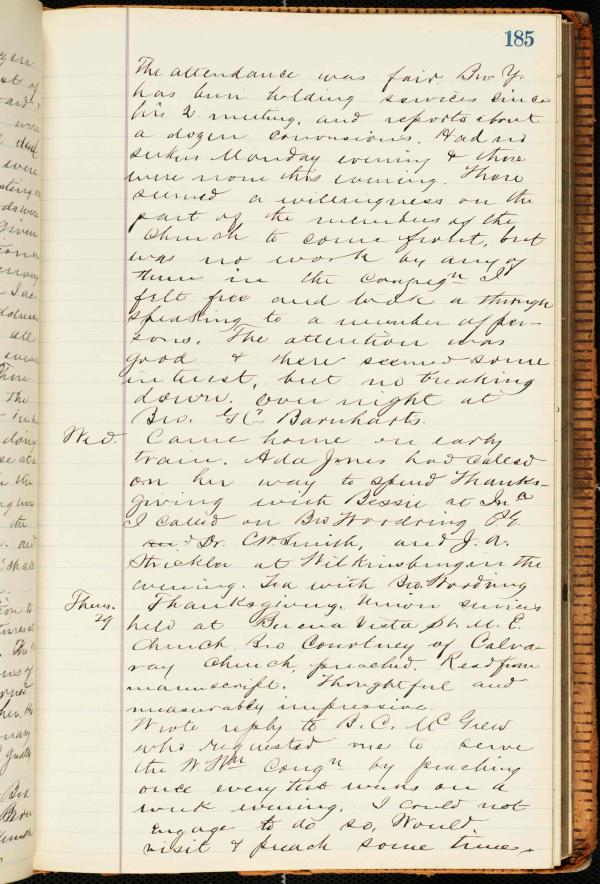 185
The attendance was fair. Bro Y.
has been holding services since
his 2 meeting, and reports about
a dozen conversions. Had no
seekers Monday evening & there
were none this evening. There
seemed a willingness on the
part of the members of the
Church to come front, but
was no work by any of
them in the congn. I
felt free and took a through
speaking to a number of per-
sons. The attention was
good & there seemed some
interest, but no breaking
down. Over night at
Bro. Barnharts.
Wed. Came home on early
train. Ada Jones had called
on her way to spend Thanks-
giving with Bessie at Ina
I called on Bro Woodring
Dr. C W Smith, and J. A.
Strickler at Wilkinsburg in the
evening. Tea with Bro. Woodring
Thurs. Thanksgiving. Union services
29 held at Buena Vista St. M. E.
Church. Bro Courtney of Calva-
ray Church, preached. Read from
manuscript. Thoughtful and
measurably impressive.
Wrote reply to B. C. McGrew
who requested me to serve
the Congn by preaching
once every two weeks on a
week evening. I could not
engage to do so. Would
visit & preach some times.